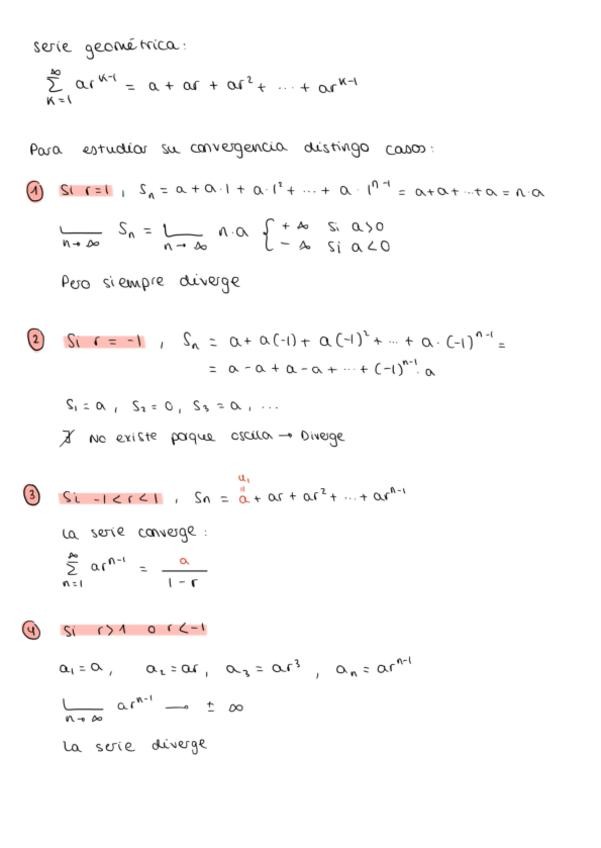 serie geométrica:
∞
∑ ar^(k-1) = a + ar + ar² + ... + ar^(k-1)
k=1
Para estudiar su convergencia distingo casos:
① Si r=1, Sₙ = a + a·1 + a·1² + ... + a·1^(n-1) = a+a+...+a = n·a
lim n→∞ Sₙ = lim n→∞ n·a { +∞ si a>0
-∞ si a<0
Pero siempre diverge
② Si r = -1, Sₙ = a + a(-1) + a(-1)² + ... + a·(-1)^(n-1) =
= a - a + a - a + ... + (-1)^(n-1)·a
S₁ = a, S₂ = 0, S₃ = a, ...
∄ No existe porque oscila → Diverge
u₁
=
③ Si -1<r<1, Sn = a + ar + ar² + ... + ar^(n-1)
La serie converge:
∞
∑ ar^(n-1) = a / (1-r)
n=1
④ Si r>1 o r<-1
a₁ = a, a₂ = ar, a₃ = ar³, aₙ = ar^(n-1)
lim n→∞ ar^(n-1) → ± ∞
La serie diverge